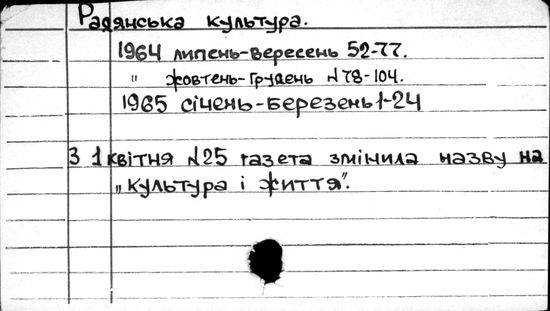 Радянська культура.
1964 липень-вересень 52-77.
" жовтень-грудень №78-104.
1965 січень-березень 1-24
З 1 квітня №25 газета змінила назву на
„Культура і життя".